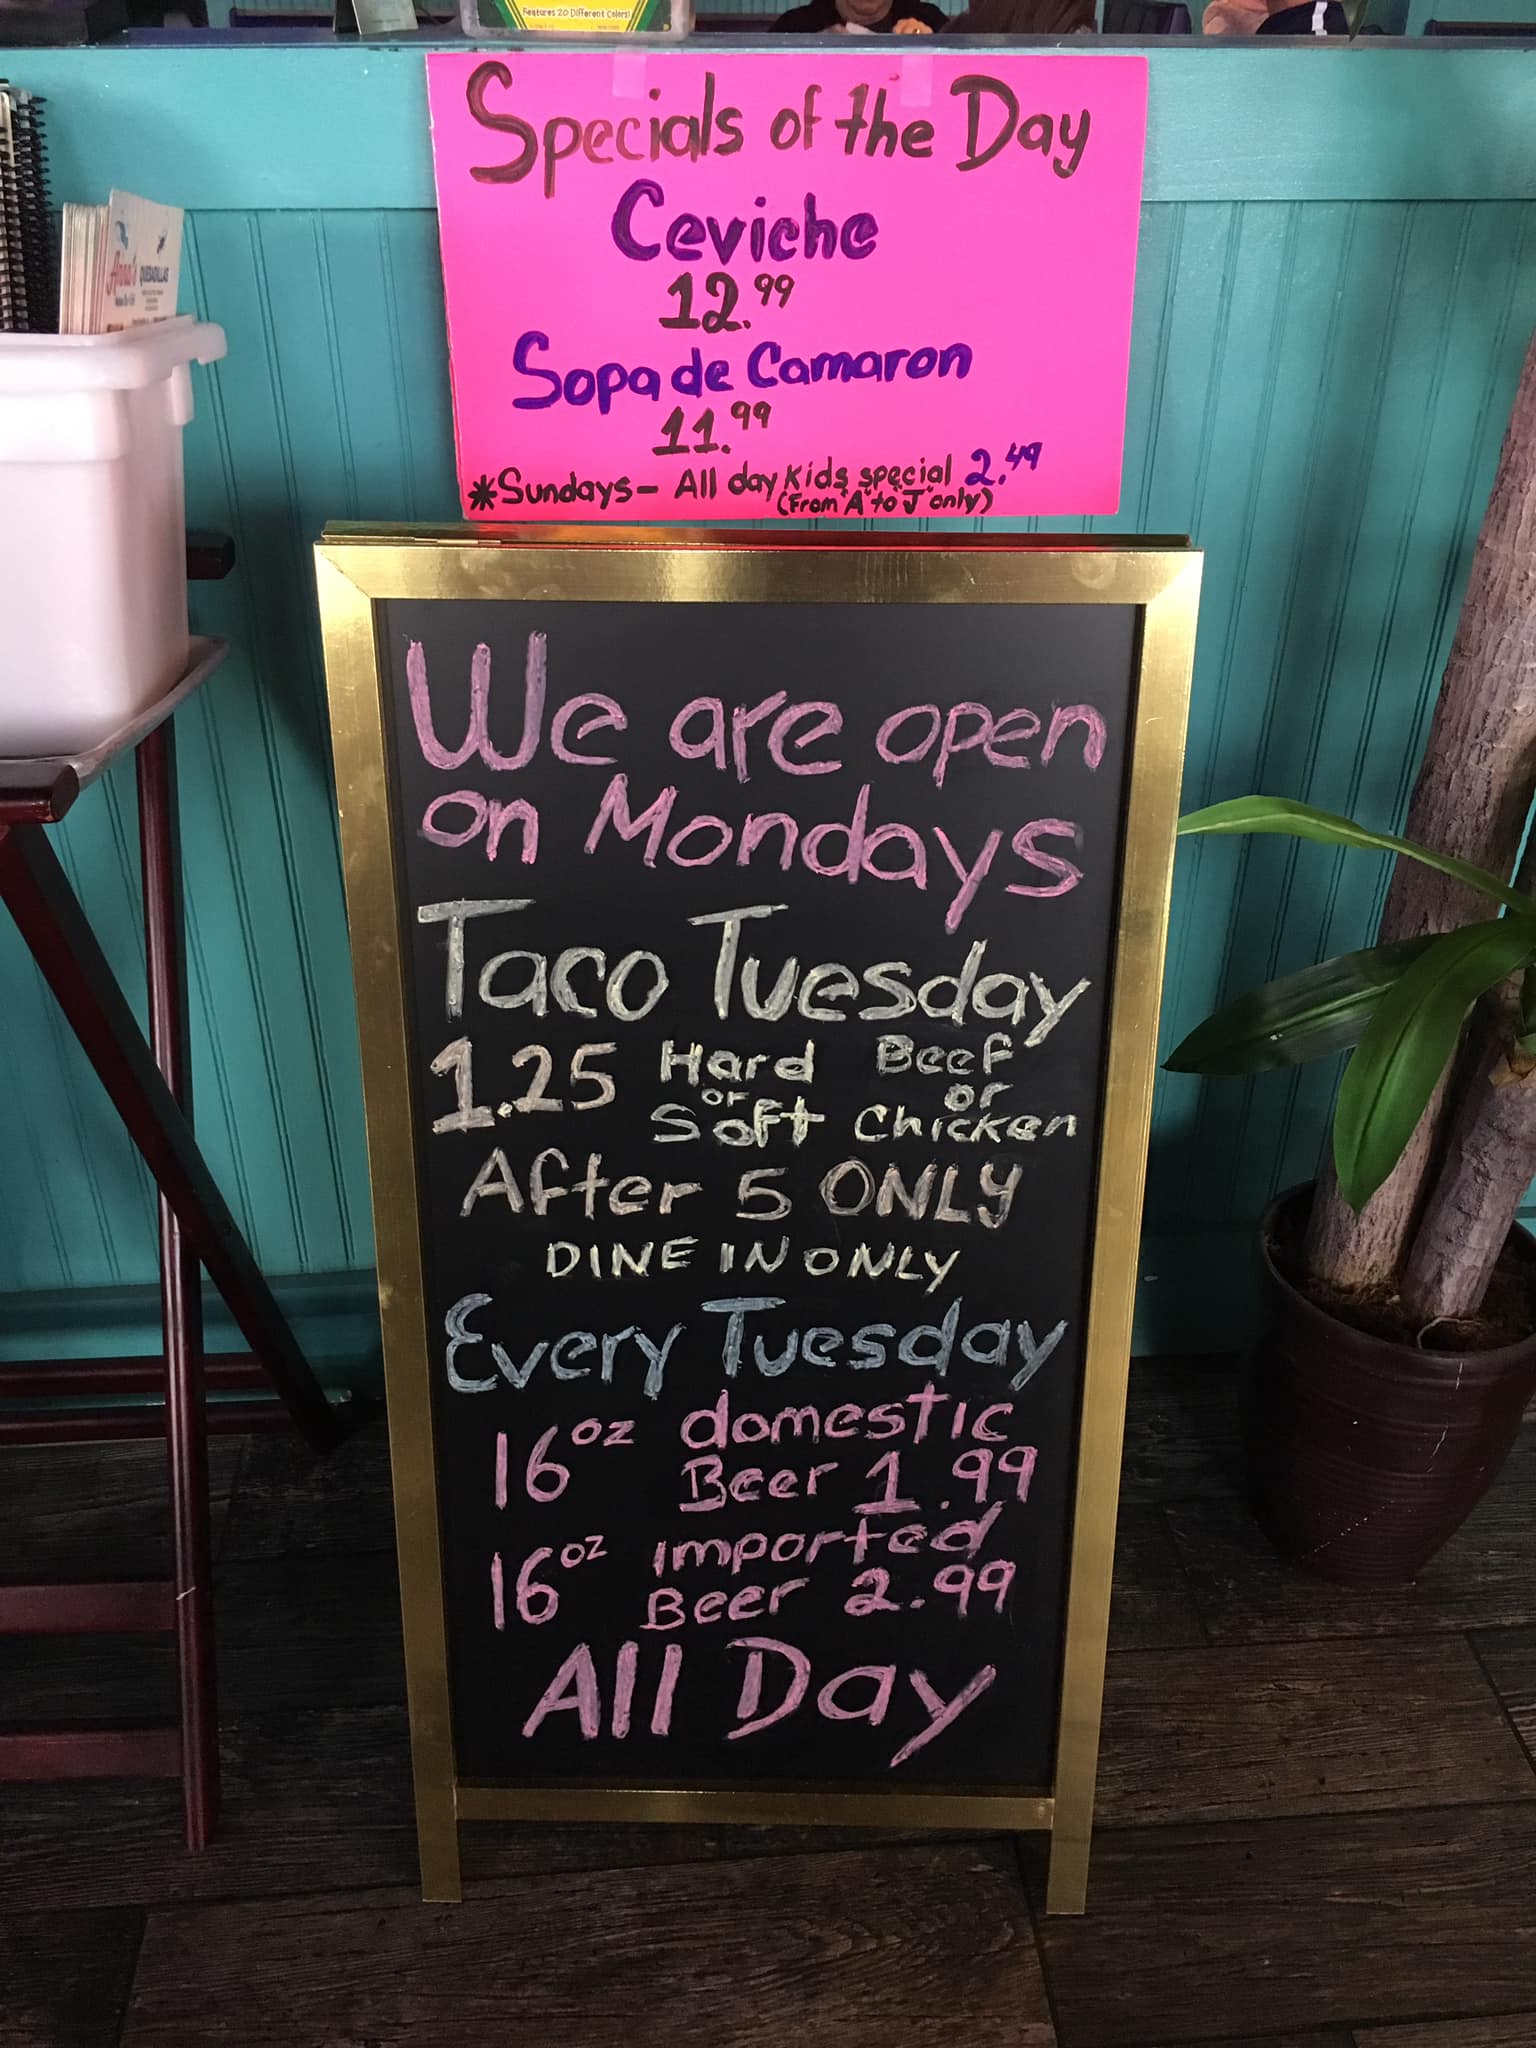 Features 20 Different Colors!
Specials of the Day
Ceviche
12.99
Sopa de Camaron
11.99
*Sundays - All day Kids special 2.49
(From "A" to "J" only)
Anna's
QUESADILLAS
We are open
on Mondays
Taco Tuesday
1.25 Hard or Soft Beef or Chicken
After 5 ONLY
DINE IN ONLY
Every Tuesday
16 oz domestic
Beer 1.99
16 oz imported
Beer 2.99
All Day